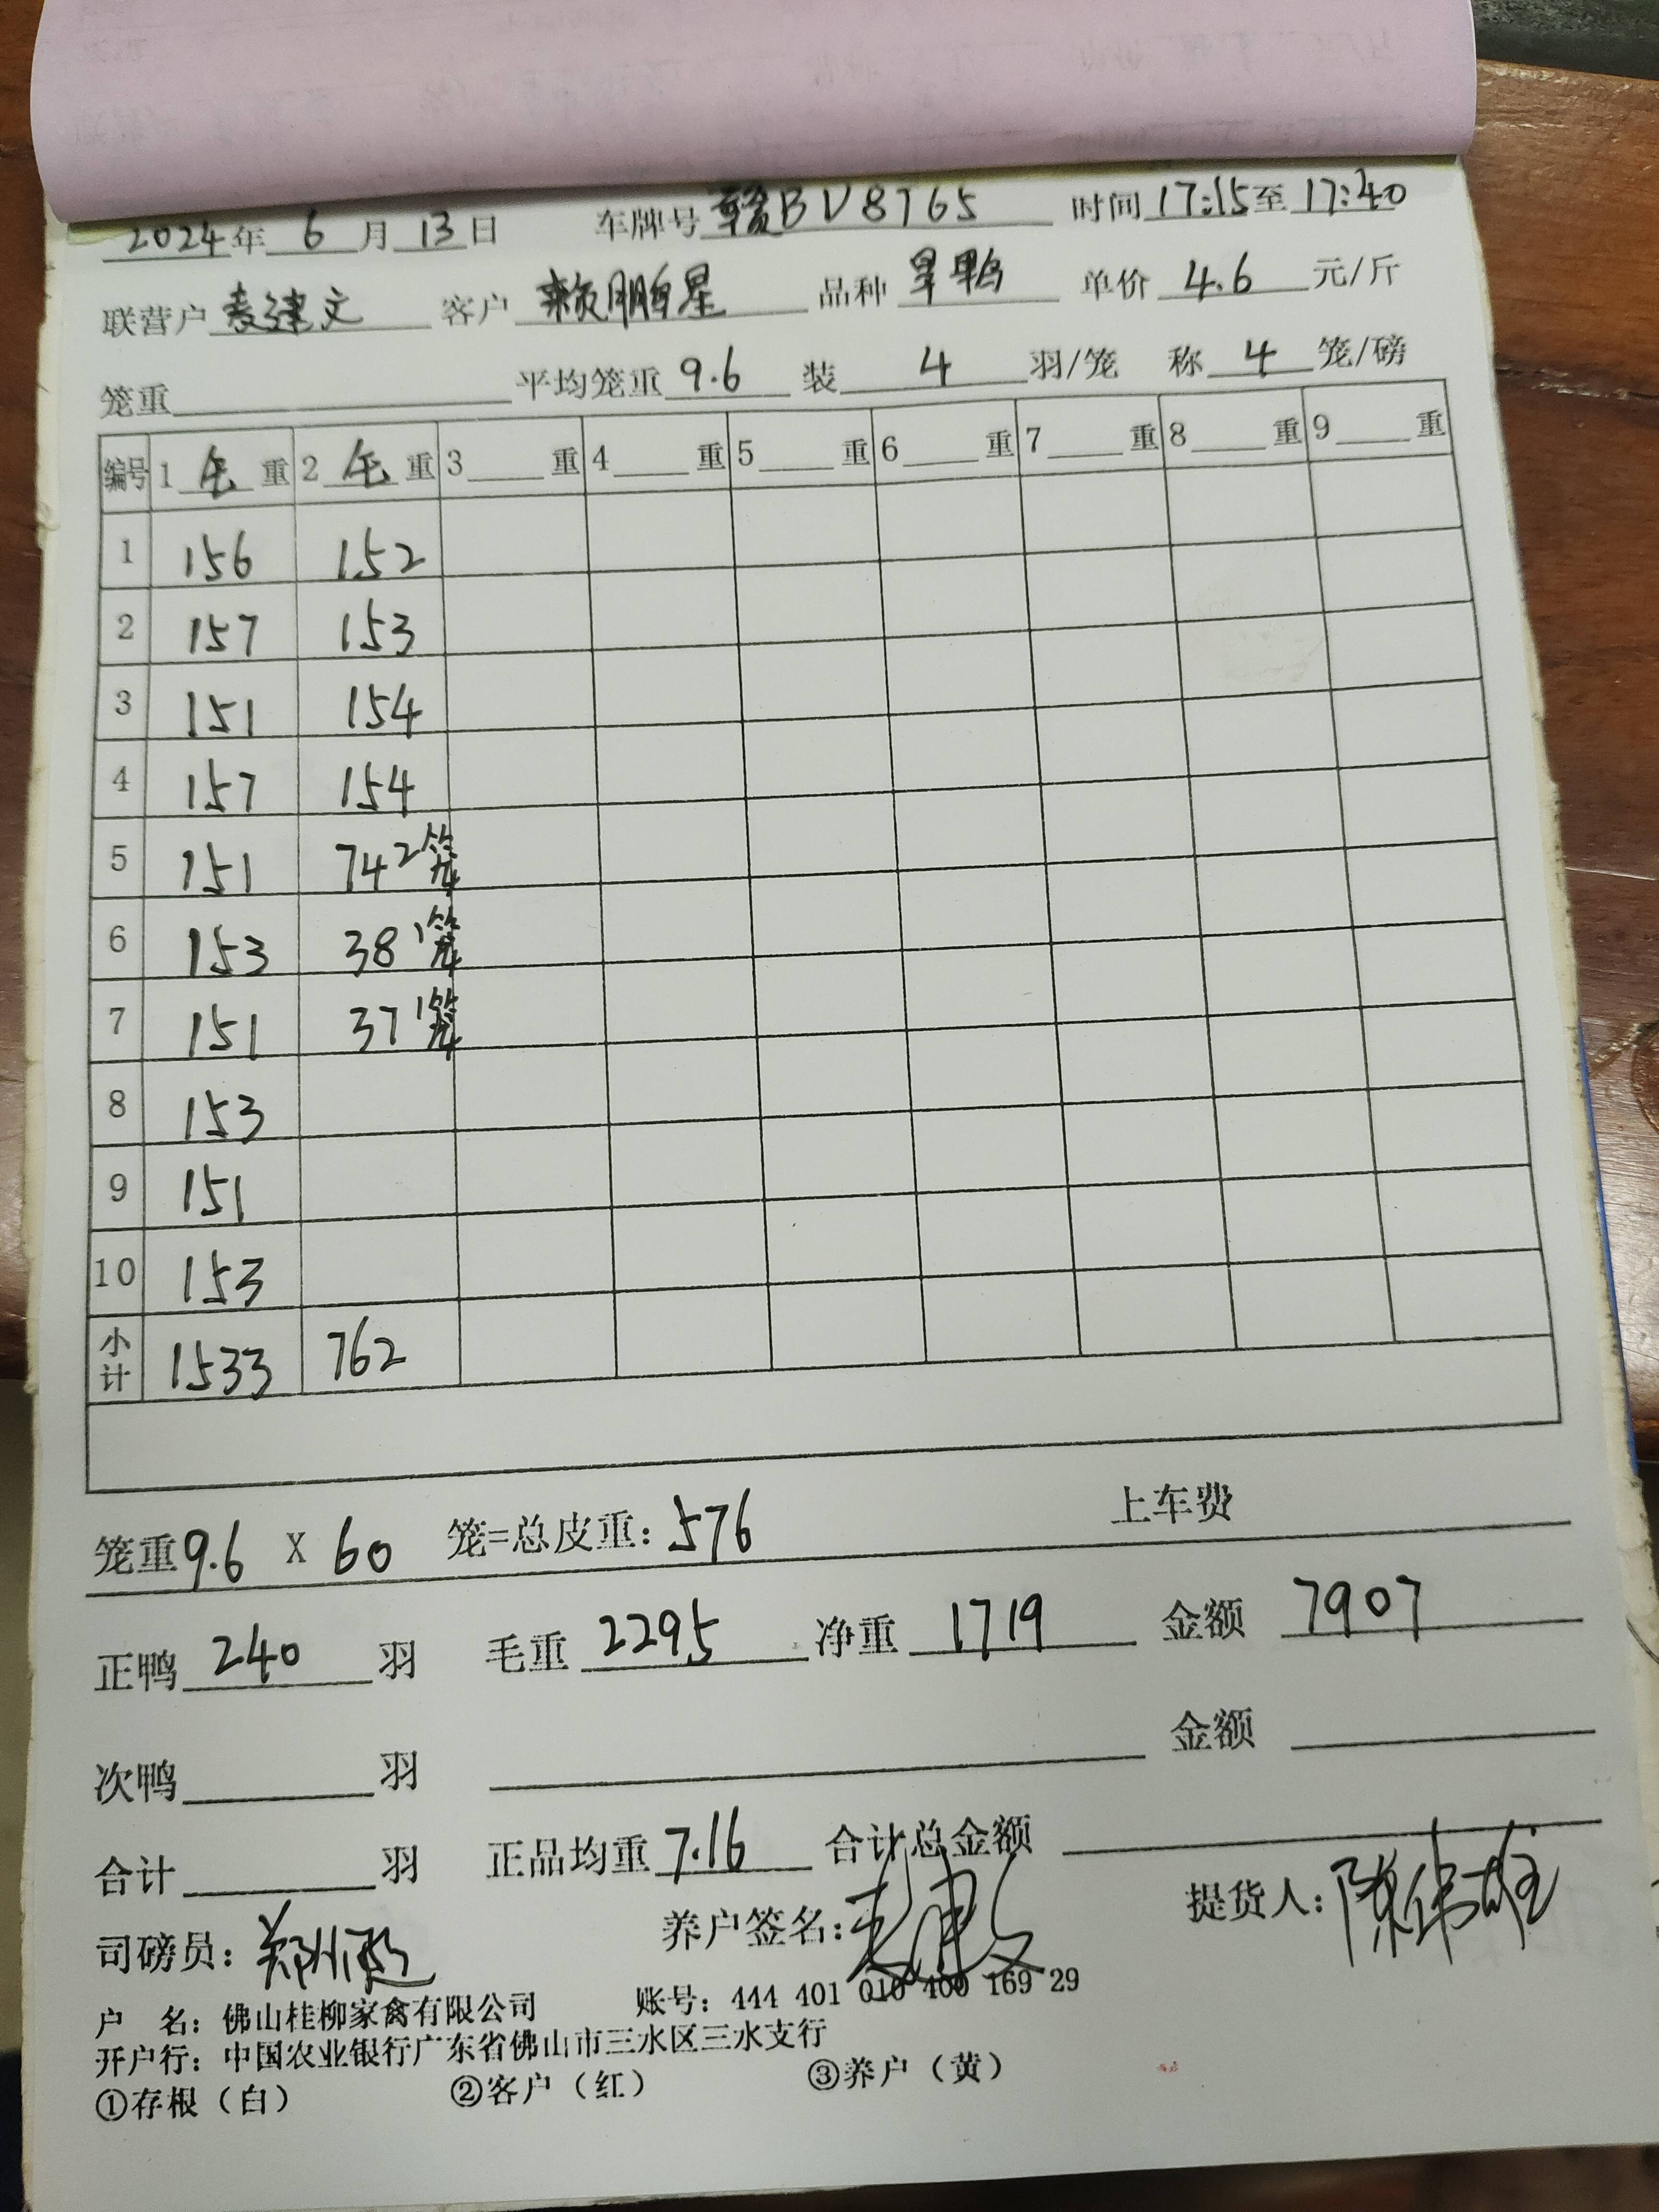 2024年 6 月 13 日 车牌号 赣BV8765 时间 17:15至 17:40
联营户 麦建文 客户 赖鹏星 品种 旱鸭 单价 4.6 元/斤
笼重 平均笼重 9.6 装 4 羽/笼 称 4 笼/磅
编号 1 毛 重 2 毛 重 3 重 4 重 5 重 6 重 7 重 8 重 9 重
1 156 152
2 157 153
3 151 154
4 157 154
5 151 74 2笼
6 153 38 1笼
7 151 37 1笼
8 153
9 151
10 153
小计 1533 762
笼重9.6 X 60 笼=总皮重: 576 上车费
正鸭 240 羽 毛重 2295 净重 1719 金额 7907
次鸭 羽 金额
合计 羽 正品均重 7.16 合计总金额
司磅员: 养户签名: 麦建文 提货人: 陈伟雄
户 名: 佛山桂柳家禽有限公司 账号: 444 401 010 400 169 29
开户行: 中国农业银行广东省佛山市三水区三水支行
①存根（白） ②客户（红） ③养户（黄）